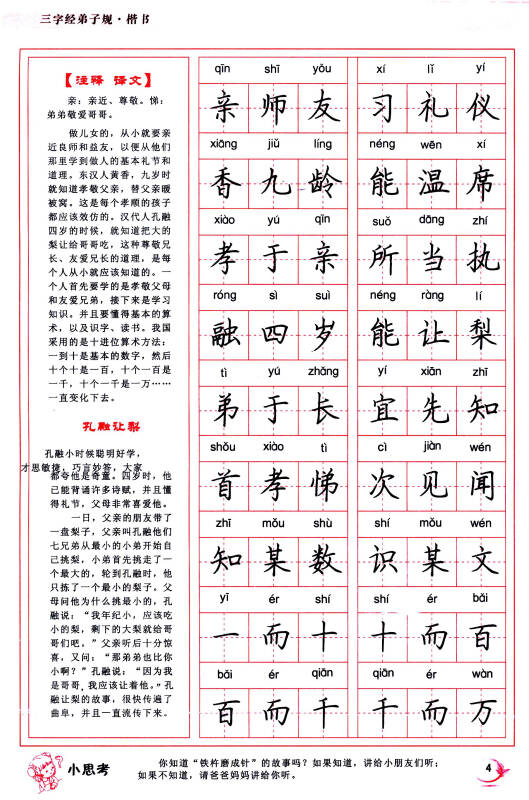 三字经弟子规·楷书
【注释 译文】
亲：亲近、尊敬。悌：
弟弟敬爱哥哥。
做儿女的，从小就要亲
近良师和益友，以便从他们
那里学到做人的基本礼节和
道理。东汉人黄香，九岁时
就知道孝敬父亲，替父亲暖
被窝。这是每个孝顺的孩子
都应该效仿的。汉代人孔融
四岁的时候，就知道把大的
梨让给哥哥吃，这种尊敬兄
长、友爱兄长的道理，是每
个人从小就应该知道的。一
个人首先要学的是孝敬父母
和友爱兄弟，接下来是学习
知识。并且要懂得基本的算
术，以及识字、读书。我国
采用的是十进位算术方法：
一到十是基本的数字，然后
十个十是一百，十个一百是
一千，十个一千是一万……
一直变化下去。
孔融让梨
孔融小时候聪明好学，
才思敏捷，巧言妙答，大家
都夸他是奇童。四岁时，他
已能背诵许多诗赋，并且懂
得礼节，父母非常喜爱他。
一日，父亲的朋友带了
一盘梨子，父亲叫孔融他们
七兄弟从最小的小弟开始自
己挑梨，小弟首先挑走了一
个最大的，轮到孔融时，他
只拣了一个最小的梨子。父
母问他为什么挑最小的，孔
融说：“我年纪小，应该吃
小的梨，剩下的大梨就给哥
哥们吧。”父亲听后十分惊
喜，又问：“那弟弟也比你
小啊？”孔融说：“因为我
是哥哥，我应该让着他。”孔
融让梨的故事，很快传遍了
曲阜，并且一直流传下来。
qīn shī yǒu xí lǐ yí
亲师友 习礼仪
xiāng jiǔ líng néng wēn xí
香九龄 能温席
xiào yú qīn suǒ dāng zhí
孝于亲 所当执
róng sì suì néng ràng lí
融四岁 能让梨
tì yú zhǎng yí xiān zhī
弟于长 宜先知
shǒu xiào tì cì jiàn wén
首孝悌 次见闻
zhī mǒu shù shí mǒu wén
知某数 识某文
yī ér shí shí ér bǎi
一而十 十而百
bǎi ér qiān qiān ér wàn
百而千 千而万
小思考
你知道“铁杵磨成针”的故事吗？如果知道，讲给小朋友们听；
如果不知道，请爸爸妈妈讲给你听。
4